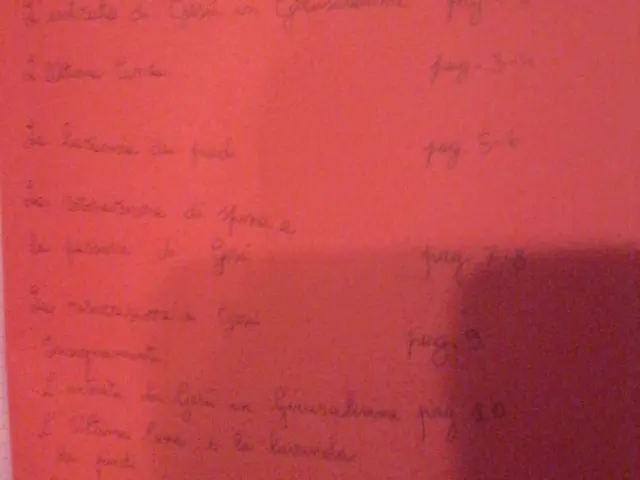 L'entrata di Gesù in Gerusalemme pag
L'ultima Cena pag. 3-4
La lavanda dei piedi pag. 5-6
La di spine e
la di Gesù pag. 7-8
La Gesù pag. 9
L'entrata di Gesù in Gerusalemme pag 10
L'ultima Cena e la lavanda
dei piedi